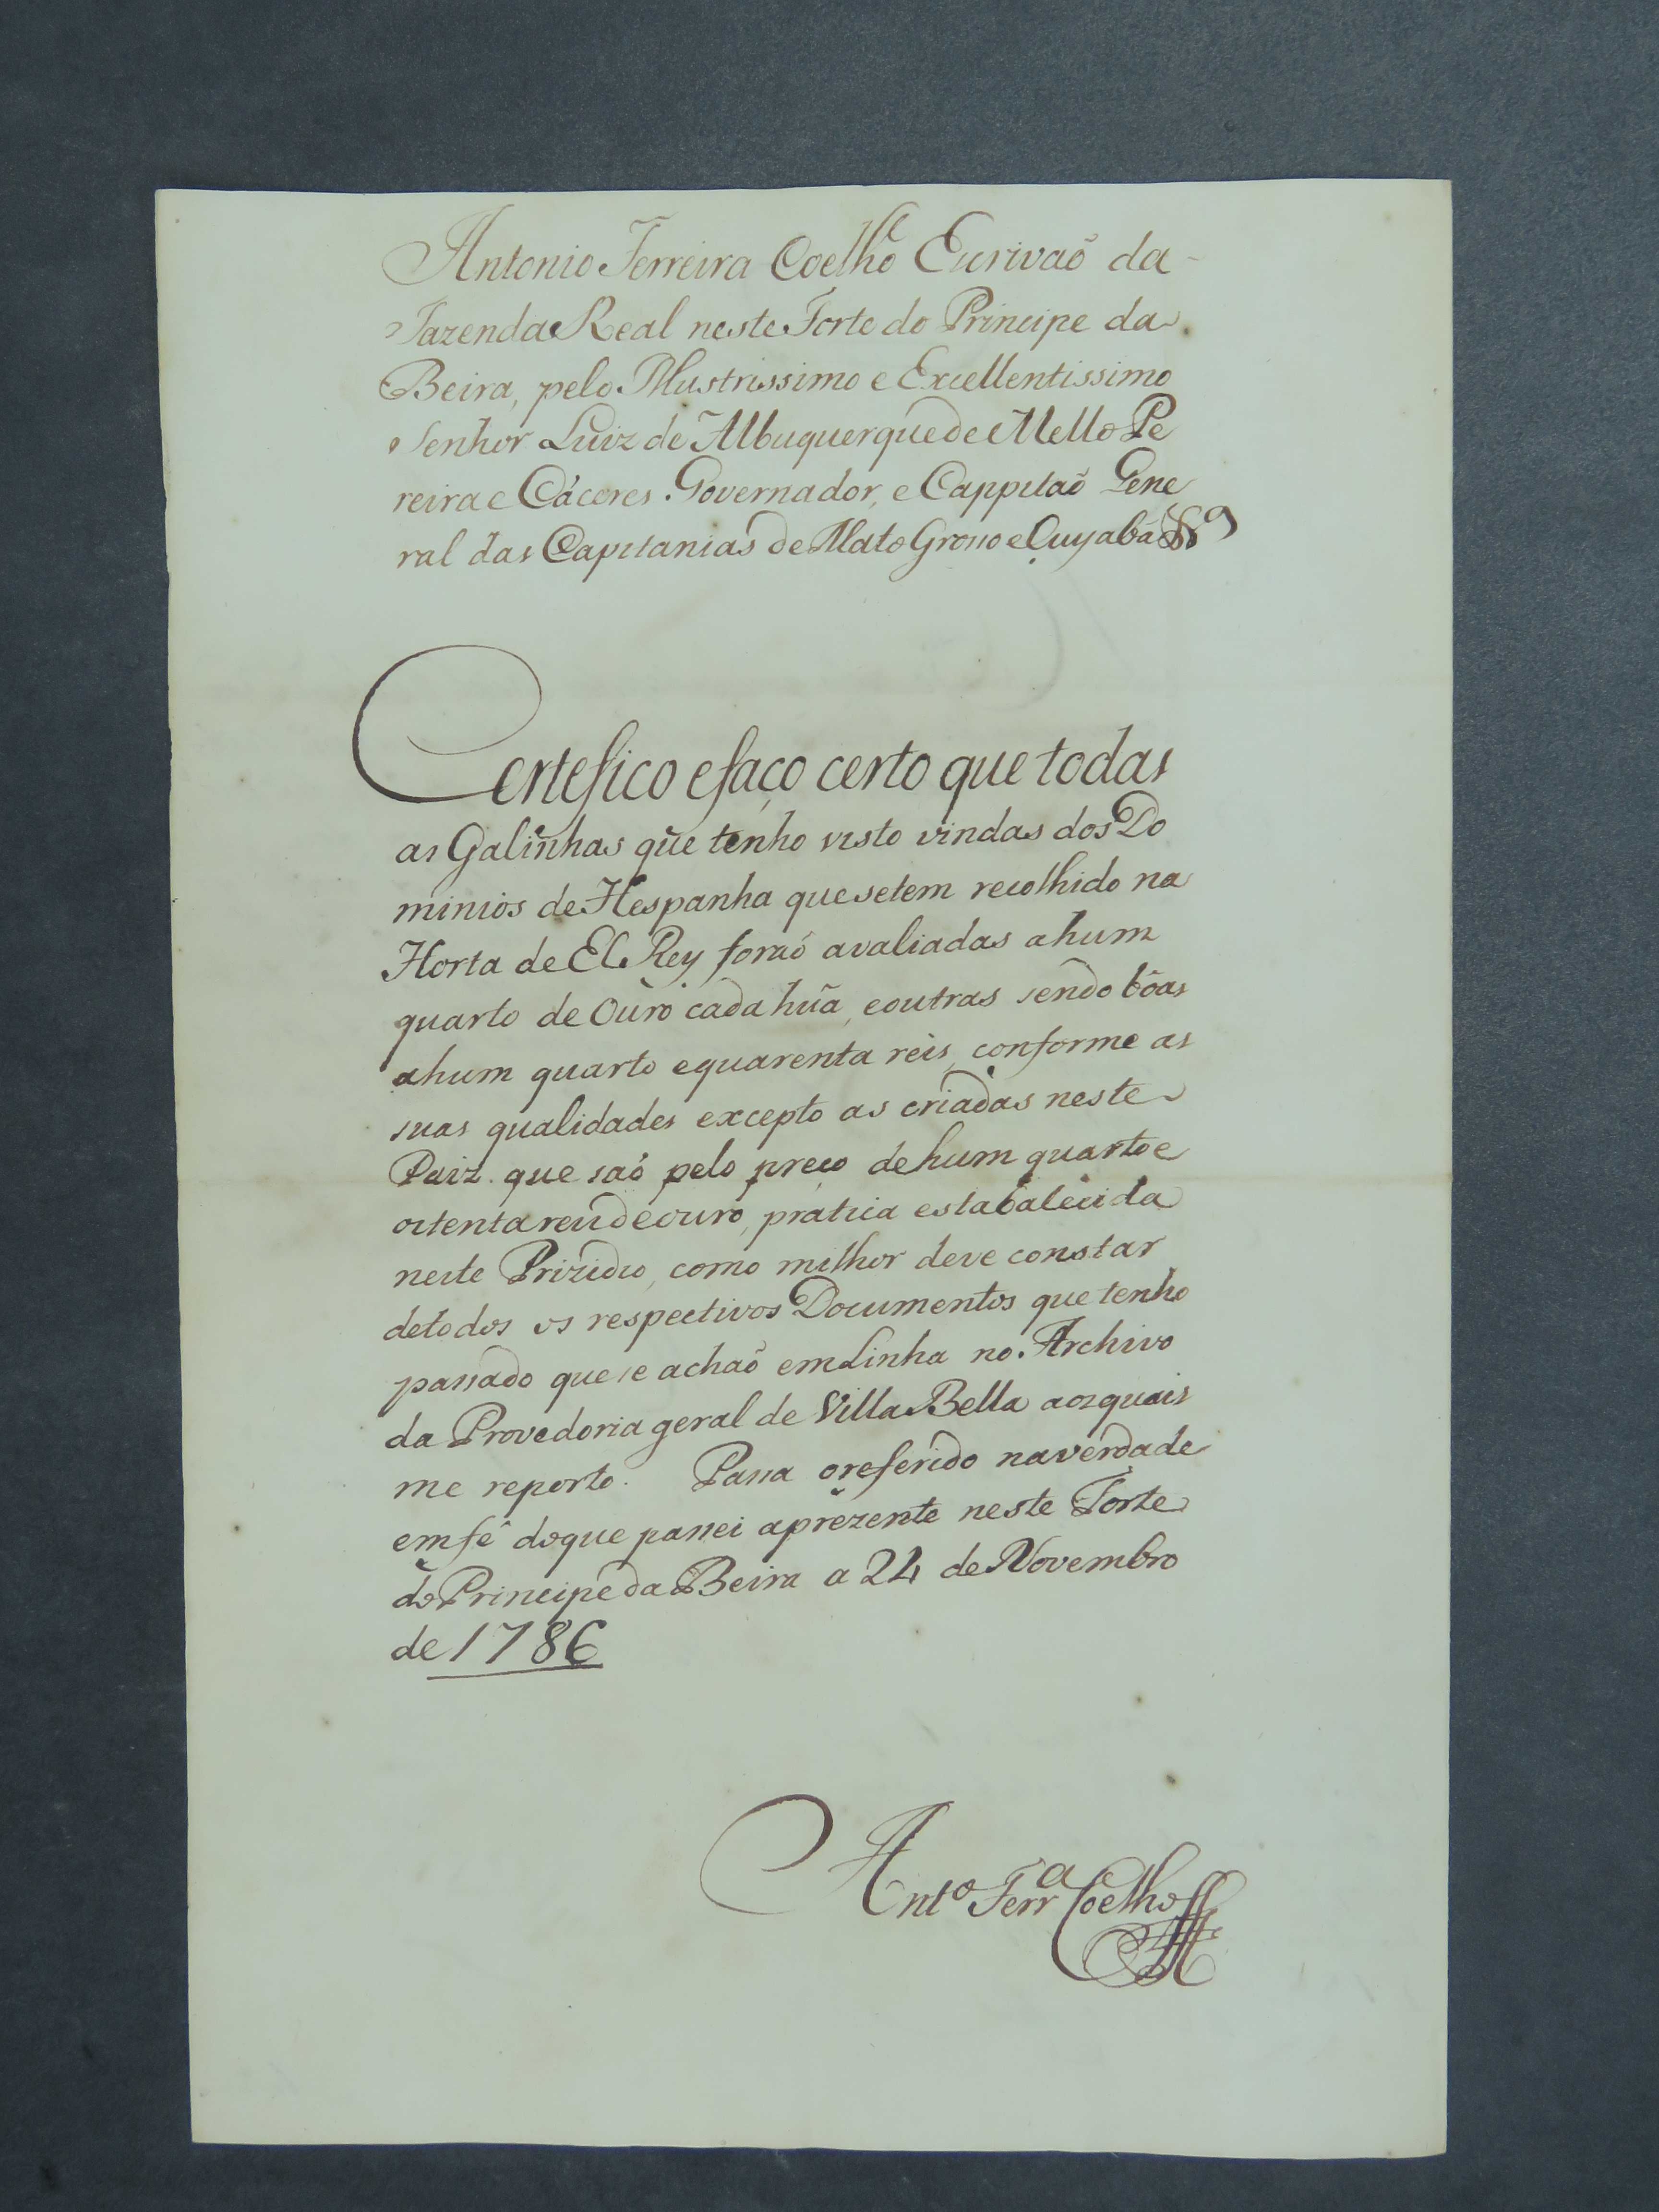 Antonio Ferreira Coelho Escrivaõ da
Fazenda Real neste Forte do Principe da
Beira, pelo Illustrissimo e Excellentissimo
Senhor Luiz de Albuquerque de Mello Pe
reira e Cáceres. Governador, e Cappitaõ Gene
ral das Capitanias de Mato Grosso e Cuyabá &ª
Certefico e faço certo que todas
as Galinhas que tenho visto vindas dos Do
minios de Hespanha que se tem recolhido na
Horta de El Rey foraõ avaliadas a hum
quarto de Ouro cada hũa, e outras sendo bôas
a hum quarto e quarenta reis, conforme as
suas qualidades excepto as criadas neste
Paiz. que saõ pelo preço de hum quarto e
oitenta reis de ouro, pratica estabalecida
neste Prizidio, como milhor deve constar
de todos os respectivos Documentos que tenho
passado que se achaõ em Linha no Archivo
da Provedoria geral de Villa Bella aos quais
me reporto. Passa o referido na verdade
em fê do que passei a prezente neste Forte
do Principe da Beira a 24 de Novembro
de 1786
Antº Ferrª Coelho